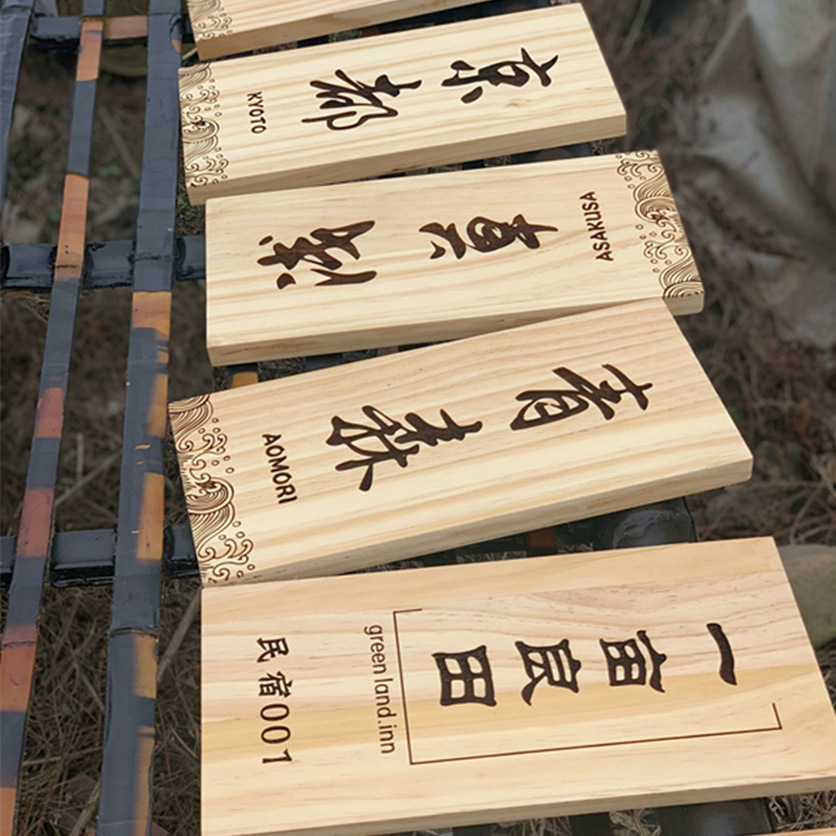 京都
KYOTO
浅草
ASAKUSA
青森
AOMORI
一亩良田
green land.inn
民宿001